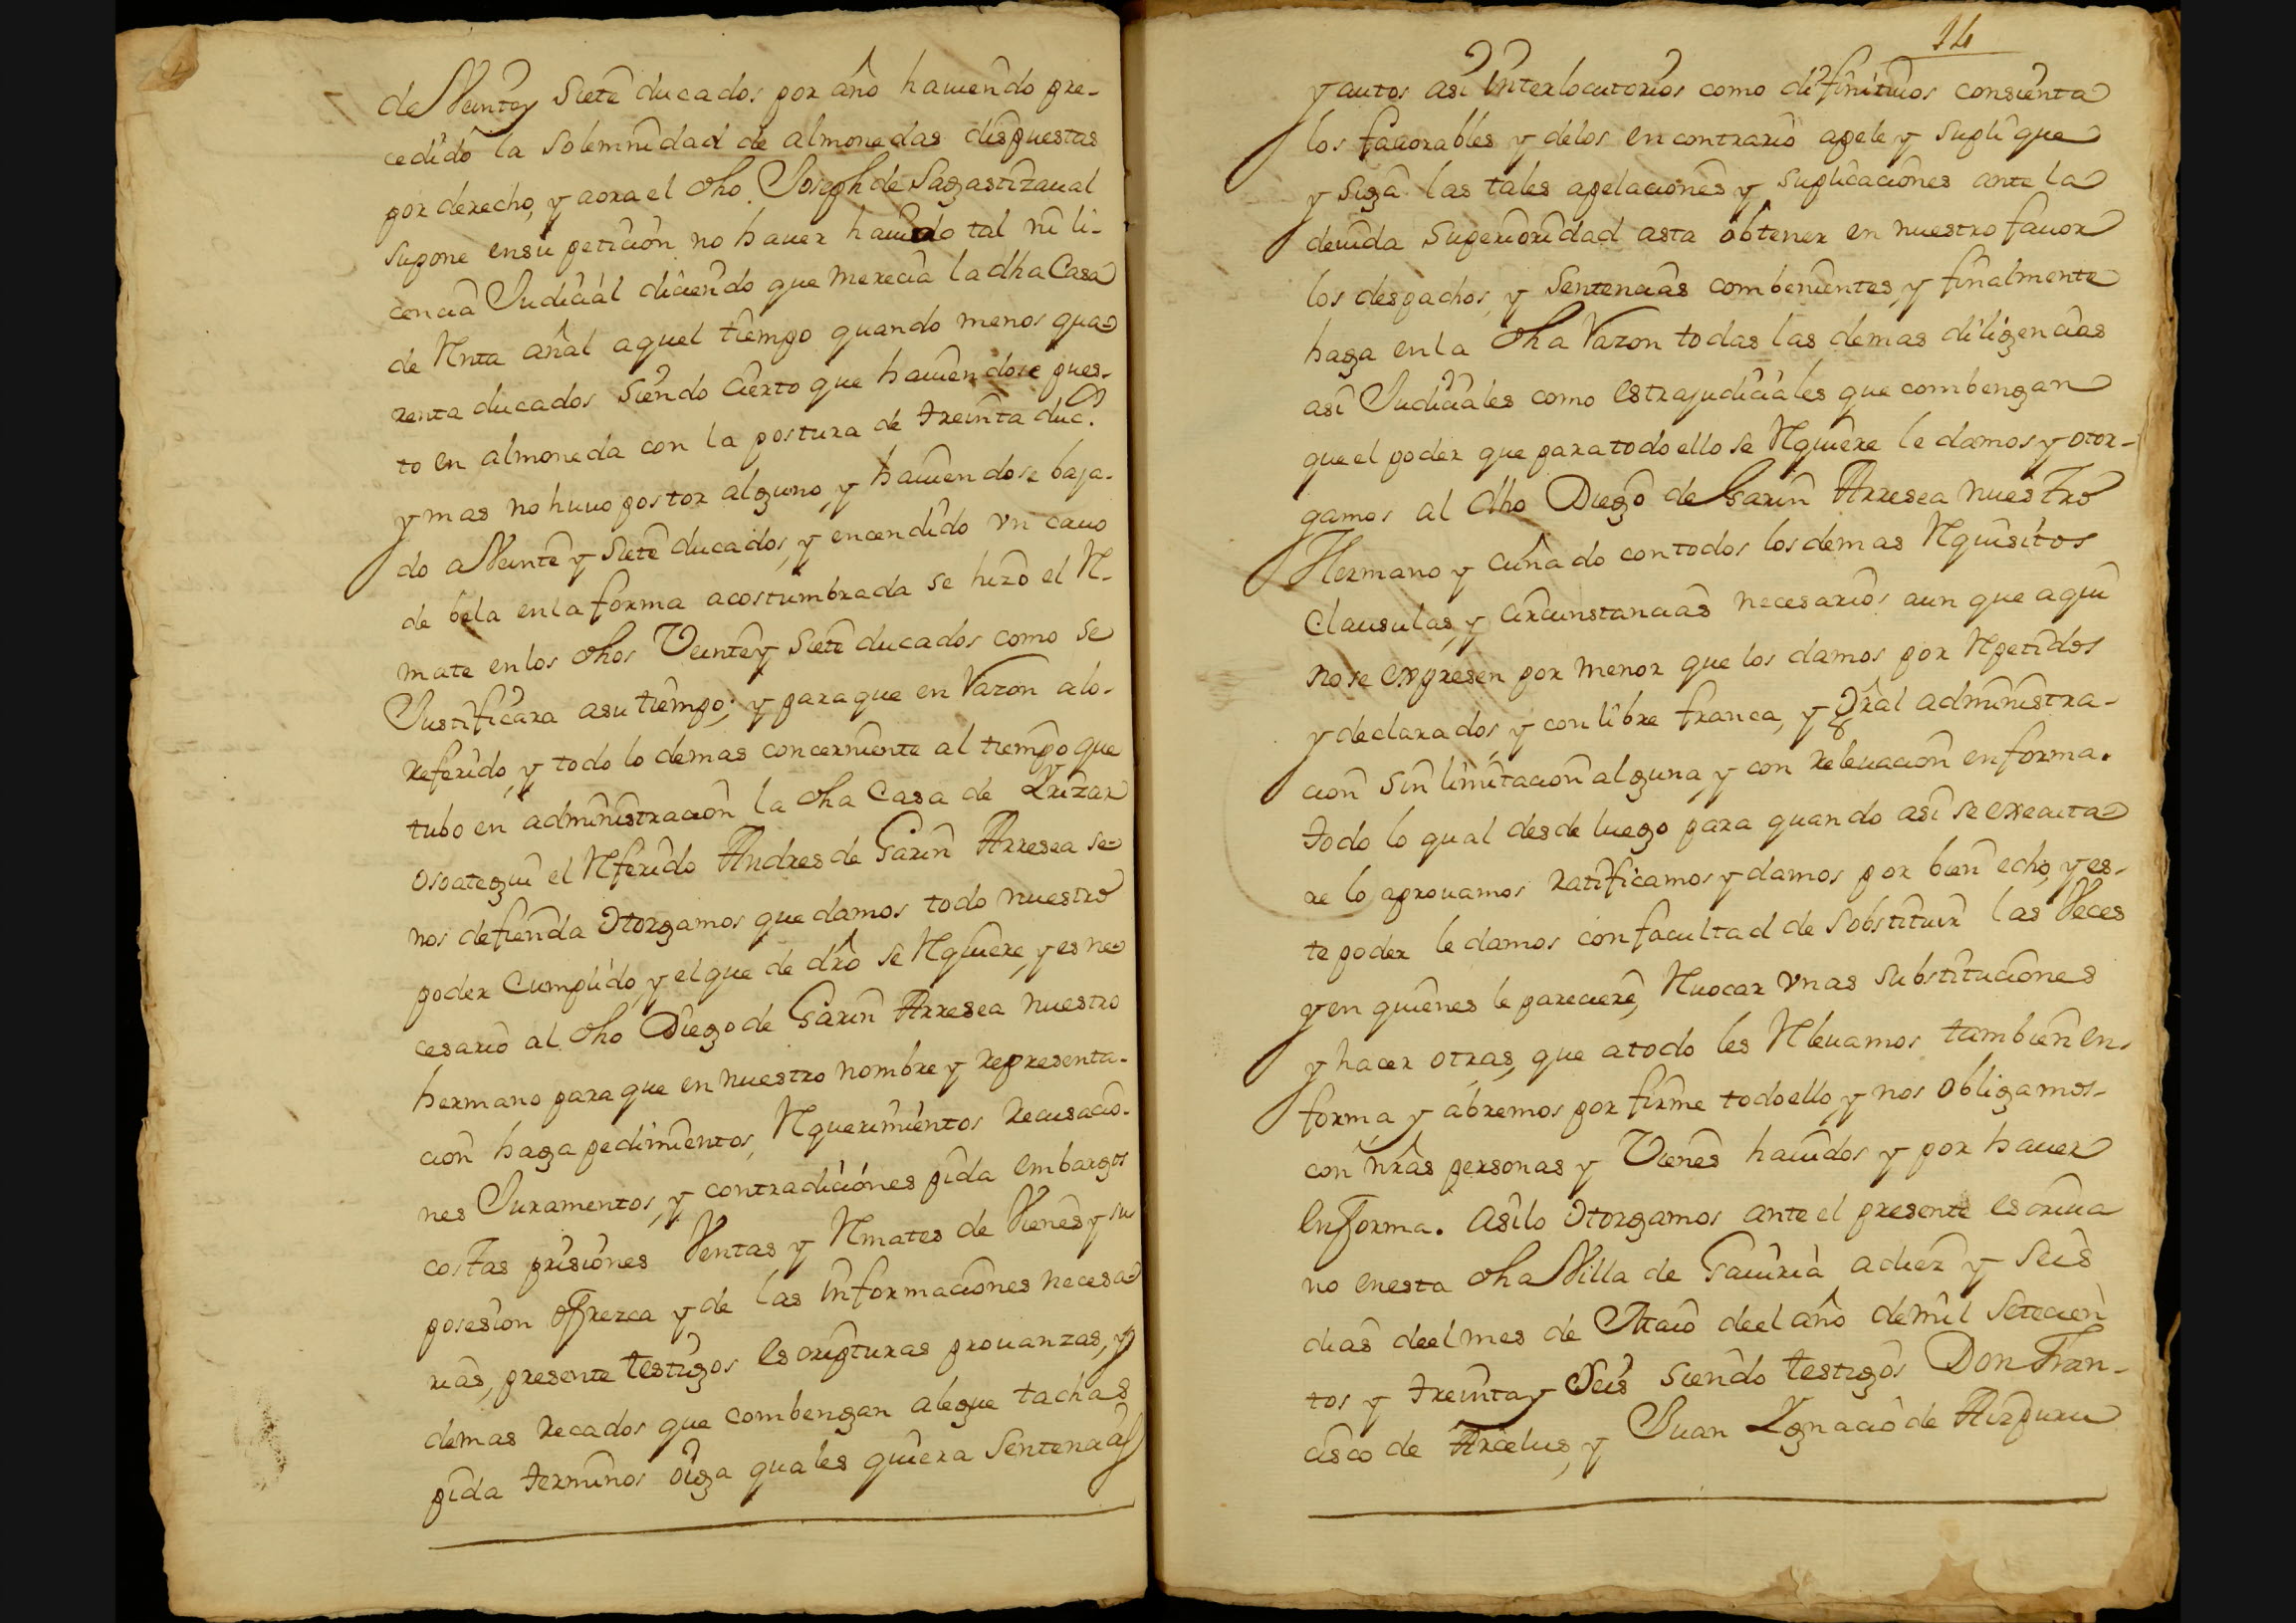 de Veinte y siete ducados por año hauiendo pre-
cedido la solemnidad de almonedas dispuestas
por derecho, y aora el dho Joseph de Sagastizaual
supone en su peticion no hauer hauido tal ni li-
cencia Judicial diciendo que merecia la dha Casa
de Renta añal aquel tiempo quando menos qua-
renta ducados siendo cierto que hauiendose pues-
to en almoneda con la postura de treinta duc.s
y mas no huuo postor alguno, y hauiendose baja-
do a Veinte y siete ducados, y encendido vn cauo
de bela en la forma acostumbrada se hizo el Re-
mate en los dhos Veinte y siete ducados como se
Justificara a su tiempo; y para que en Razon a lo
referido, y todo lo demas concerniente al tiempo que
tubo en administracion la dha Casa de Yrizar
osoategui el Referido Andres de Garin Arresea se
nos defienda otorgamos que damos todo nuestro
poder Cumplido, y el que de dro se Requiere, y es ne-
cesario al dho Diego de Garin Arresea nuestro
hermano para que en nuestro nombre y representa-
cion haga pedimientos, Requerimientos Recusacio-
nes Juramentos, y contradiciones pida embargos
costas prisiones Ventas y Remates de Vienes y su
posesion ofrezca y de las informaciones necesa-
rias, presente testigos escripturas prouanzas, y
demas recados que combengan alegue tachas
pida terminos oiga quales quiera sentencias
14
y autos asi Interlocutorios como difinitiuos consienta
los fauorables y de los en contrario apele y suplique
y siga las tales apelaciones y suplicaciones ante la
deuida superioridad asta obtener en nuestro fauor
los despachos, y sentencias combenientes, y finalmente
haga en la dha Razon todas las demas diligencias
asi Judiciales como estrajudiciales que combengan
que el poder que para todo ello se Requiere le damos y otor-
gamos al dho Diego de Garin Arresea nuestro
Hermano y cuñado con todos los demas Requisitos
Clausulas, y circunstancias necesarios aun que aqui
no se expresen por menor que los damos por Repetidos
y declarados, y con libre franca, y gral administra-
cion sin limitacion alguna, y con releuacion en forma.
todo lo qual desde luego para quando asi se executa-
re lo aprouamos ratificamos y damos por bien echo, y es-
te poder le damos con facultad de sobstituir las Veces
y en quienes le pareciere, Reuocar vnas substituciones
y hacer otras, que a todo les Releuamos tambien en
forma, y abremos por firme todo ello, y nos obligamos-
con nras personas y Vienes hauidos y por hauer
en forma. asi lo otorgamos ante el presente escriua
no en esta dha Villa de Gauiria a diez y seis
dias de el mes de Maio de el año de mil setecien
tos y treinta y Seis siendo testigos Don Fran-
cisco de Arcelus, y Juan Ygnacio de Aizpuru